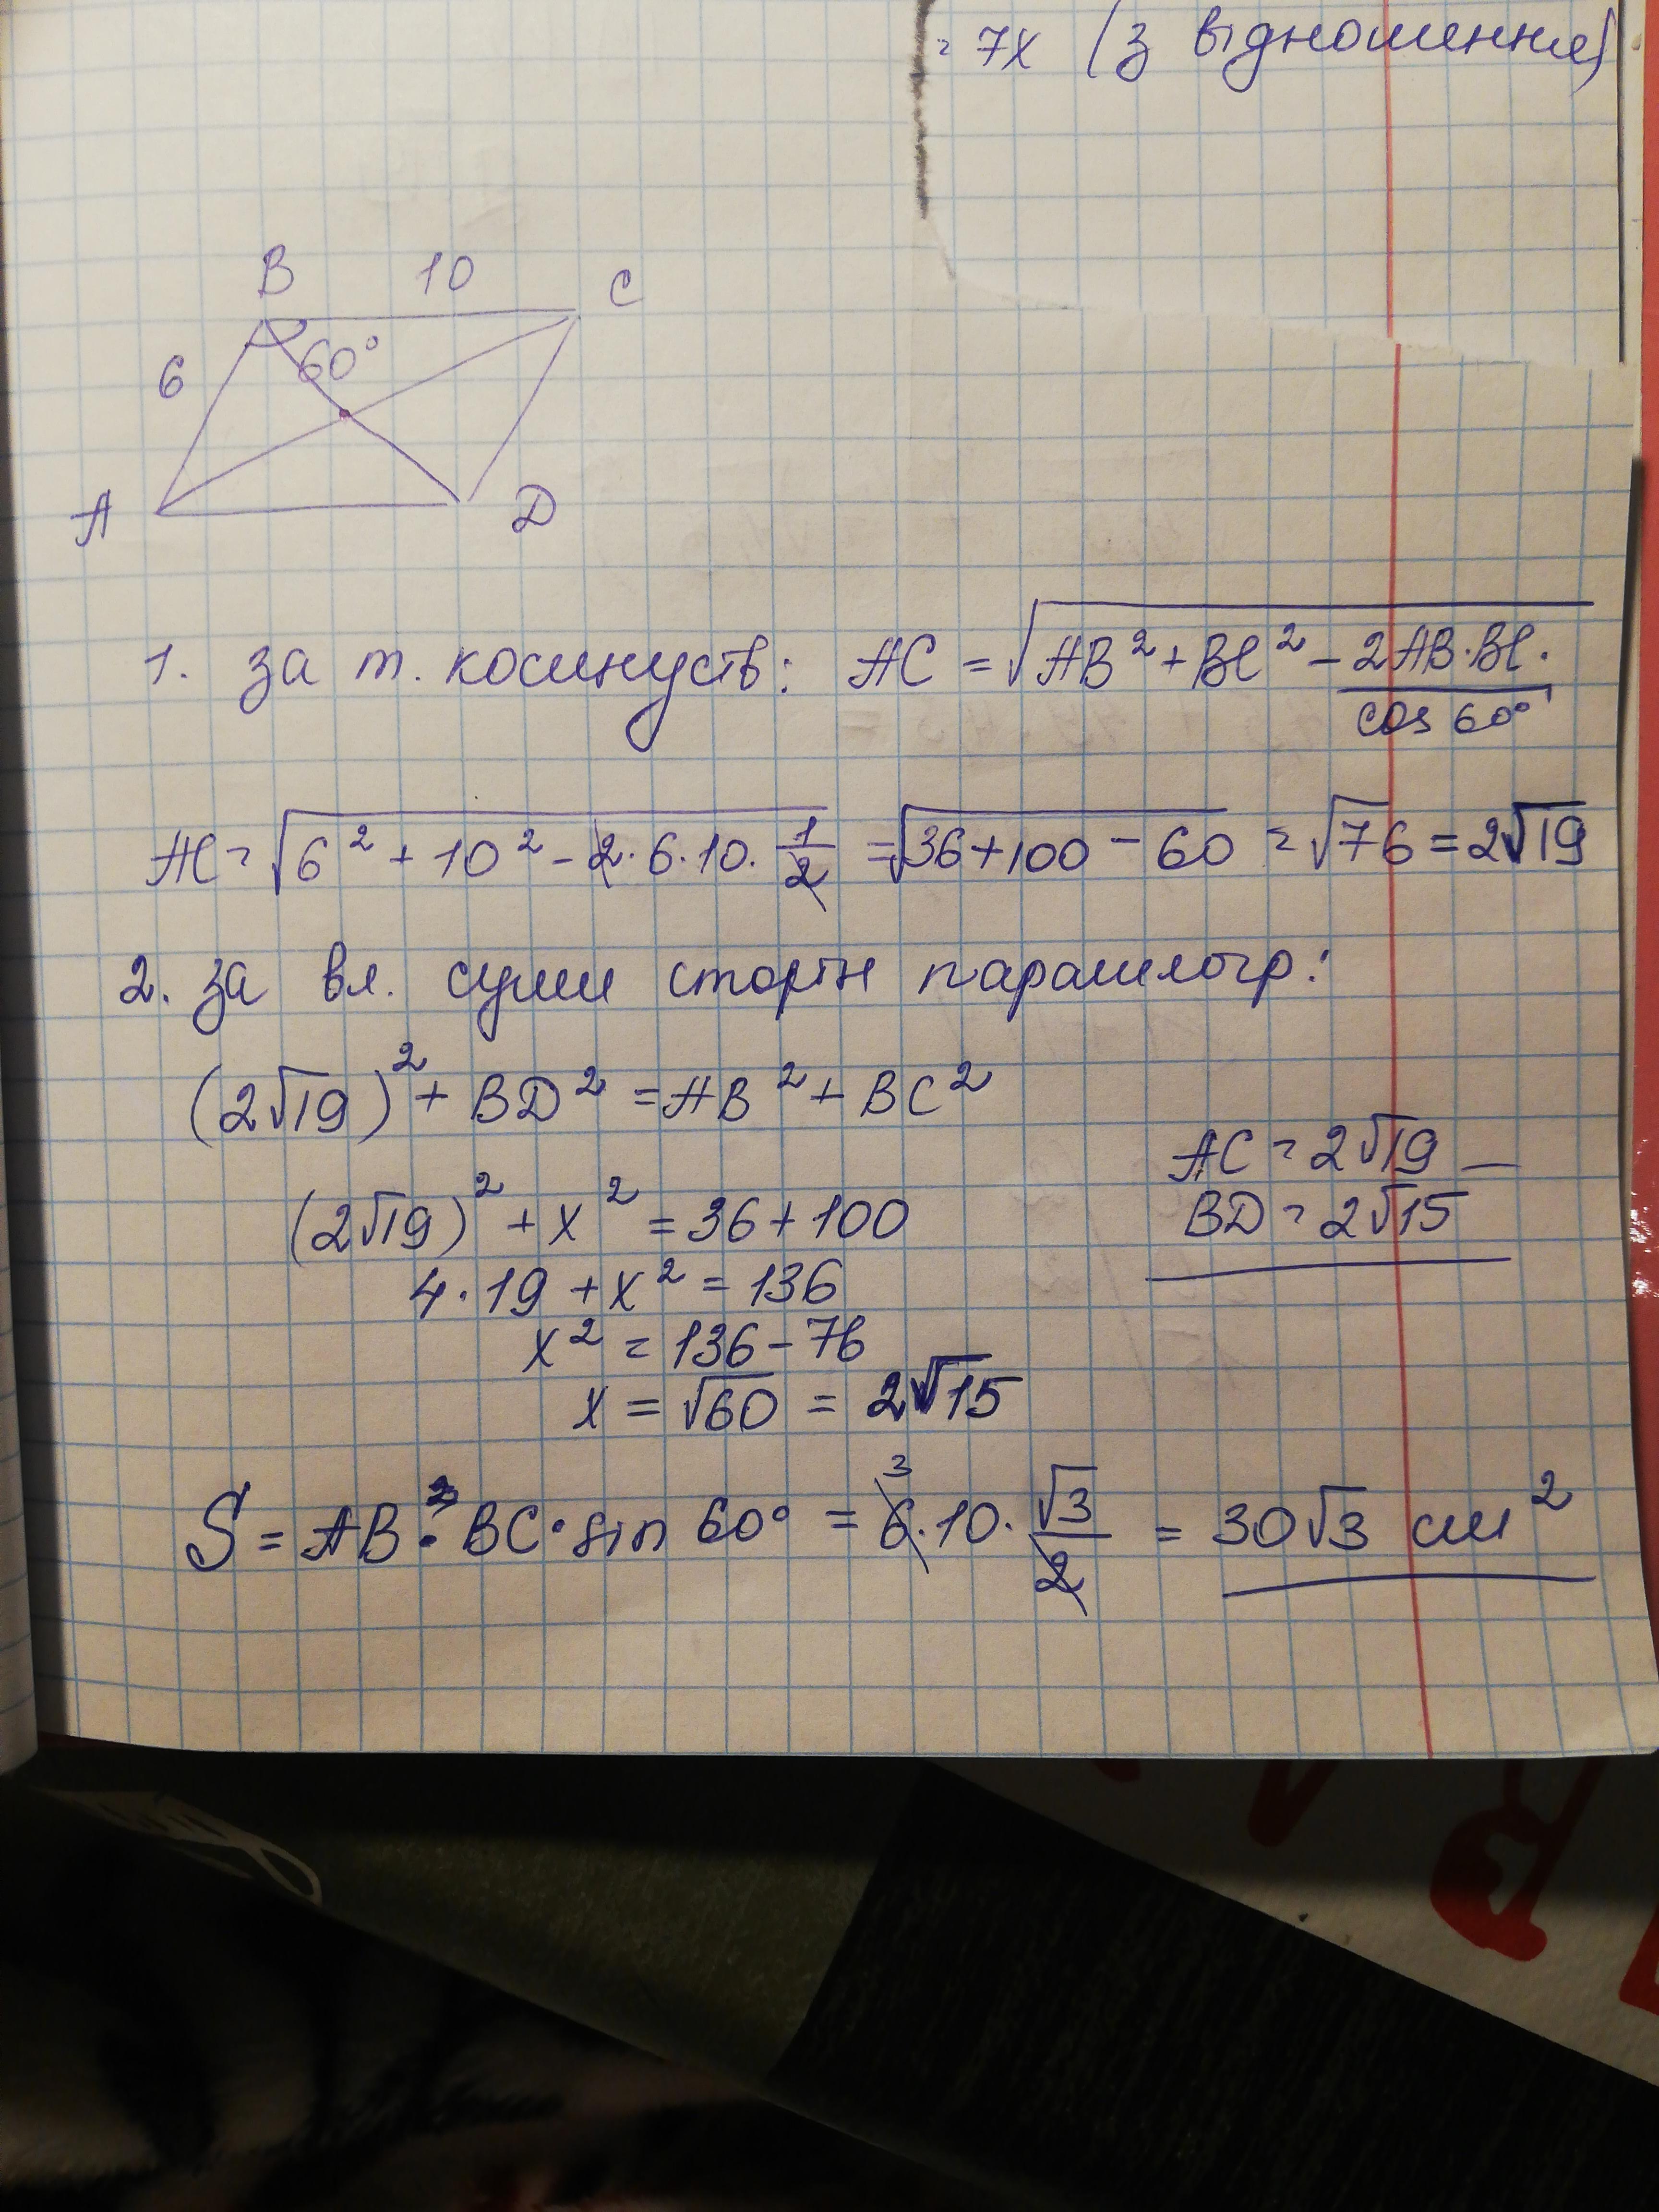 = 7x (з відношення)
B 10 C
6 60°
A D
1. за т. косинусів: AC = √AB² + BC² - 2AB·BC·
cos 60°
AC = √6² + 10² - 2·6·10·1/2 = √36+100-60 = √76 = 2√19
2. за вл. суми сторін паралелогр:
(2√19)² + BD² = AB² + BC²
(2√19)² + x² = 36 + 100
4·19 + x² = 136
x² = 136 - 76
x = √60 = 2√15
AC = 2√19
BD = 2√15
S = AB · BC · sin 60° = 6·10·√3/2 = 30√3 см²